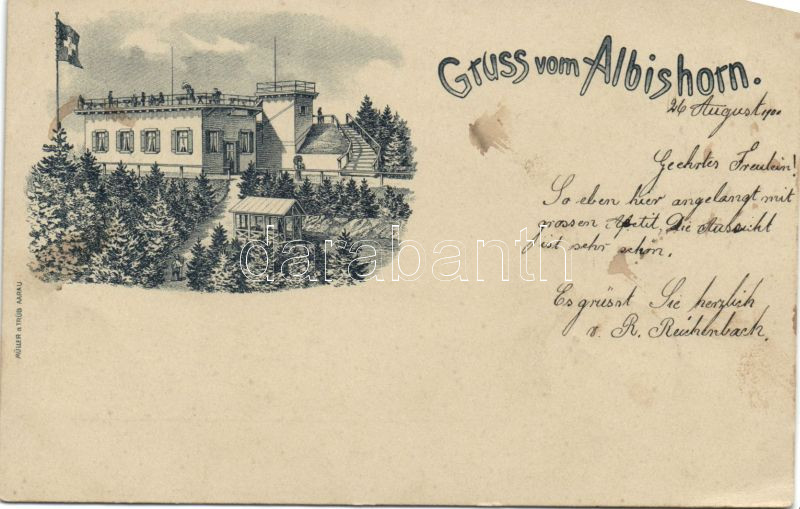 Gruss vom Albishorn.
26 August 1900
Geehrtes Freulein!
So eben hier angelangt mit
grossen Apetit, Die Aussicht
ist sehr schön.
Es grüsst Sie herzlich
v. R. Reichenbach.
MÜLLER & TRÜB AARAU
darabanth.com